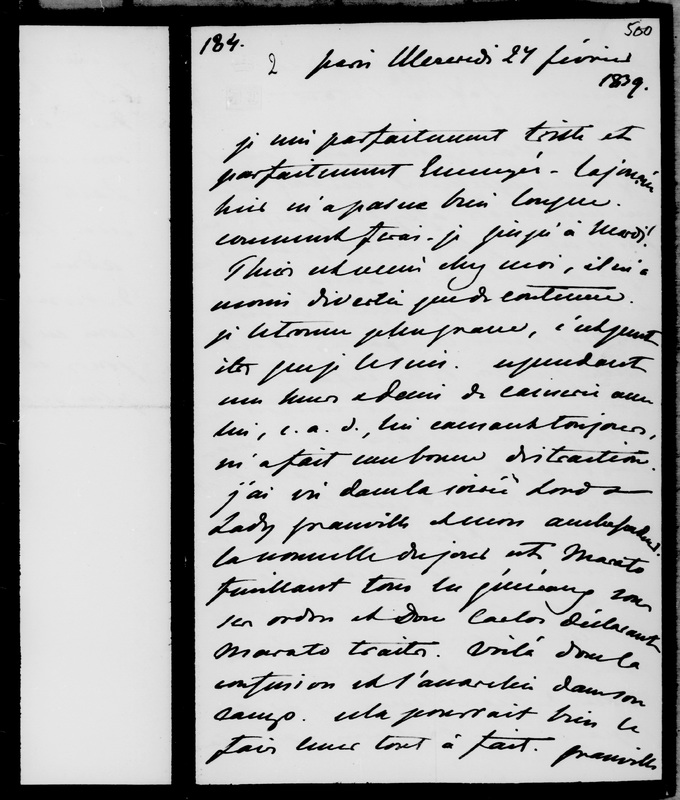 184.
500
2 Paris Mercredi 27 février
1839.
je suis parfaitement triste et
parfaitement Ennuyée - la journée
hier m'a parue bien longue.
comment ferai-je jusqu'à Mardi!
Thiers est venu chez moi, il m'a
moins divertie que de coutume.
je le trouve plus grave, c'est peut
être que je le suis. cependant
une heure & demi de causerie avec
lui, c. a. d., lui causant toujours,
m'a fait une bonne distraction.
j'ai vu dans la soirée Lord &
Lady Granville et mon ambassadeur.
la nouvelle du jour est Maroto
fusillant tous les généraux sous
ses ordres et Don Carlos déclarant
Maroto traitre. Voilà donc la
confusion et l'anarchie dans son
camp. cela pourrait bien le
faire tout à fait. Granville